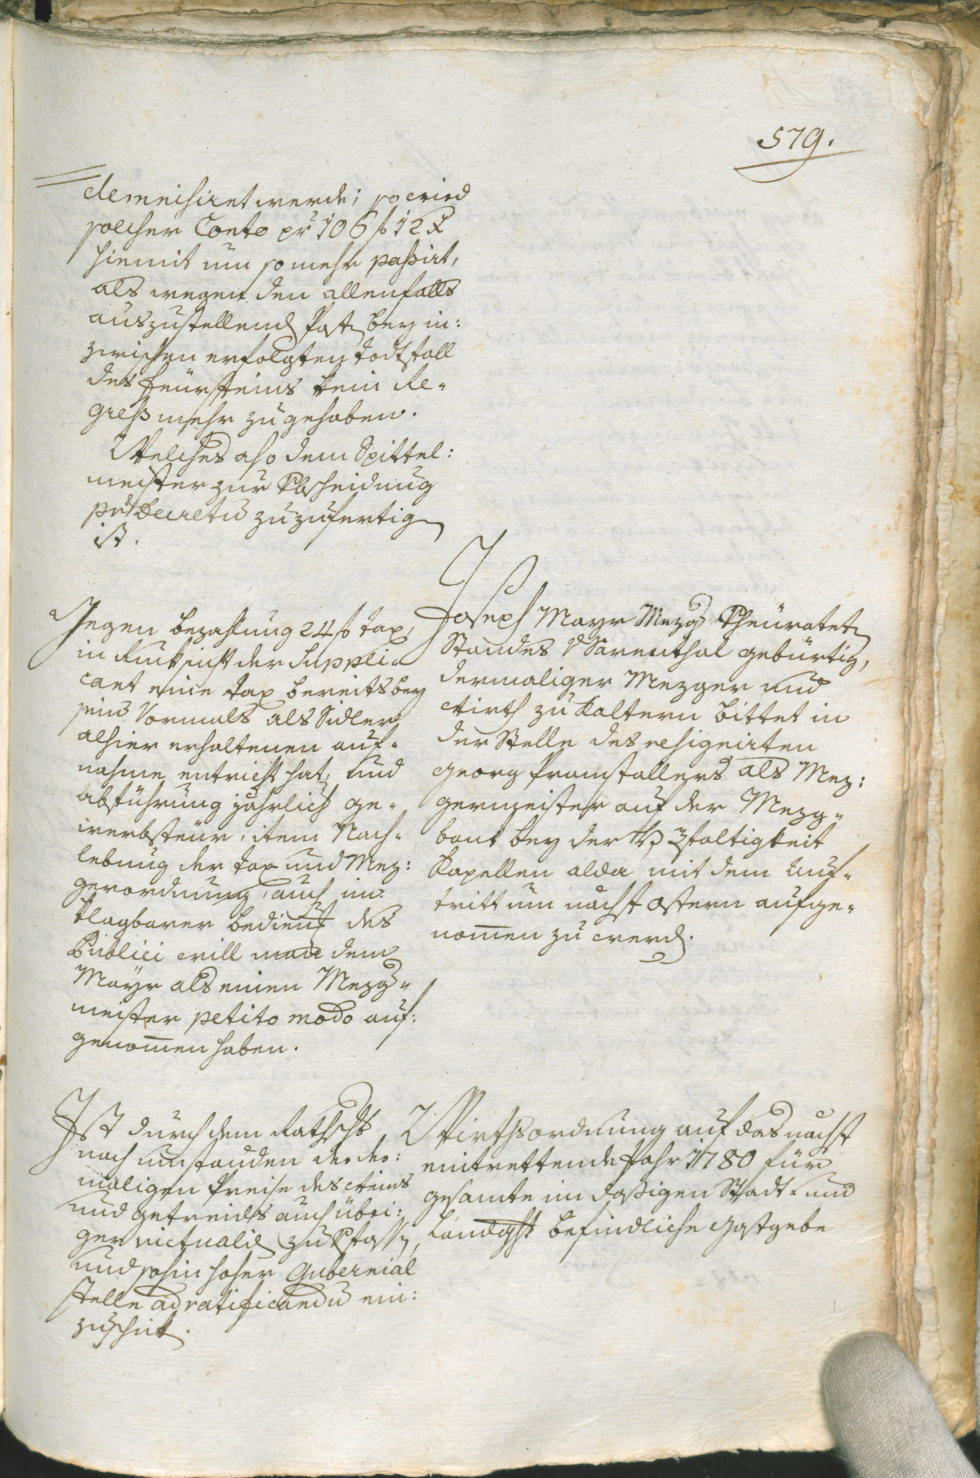 579.
demnisiret werde; so wird
solcher Conto pr 106 f 12 x
hiemit um so mehr passirt,
als wegen den allenfalls
auszustellend Post bey in:
zwischen erfolgten Todtfall
des Feürsteins kein Re-
gress mehr zu gehaben.
Welches also dem Spittel:
meister zur Bscheidung
pr Decretu zuzufertig
ist.
Gegen bezahlung 24 f tax
in Ruksicht der Suppli-
cant eine tax bereits bey
seins Vormals als Sidler
alhier erhaltenen auf-
nahme entricht hat, und
abführung jährlich ge-
werbsteür, item Nach-
lebung der tax und Mez:
gerordnung, auch un
klagbarer bedienung des
Publici will man dem
Mayr als einen Mezg-
meister petito modo auf:
genommen haben.
Joseph Mayr Mezg Vheürateten
Standes v Sarenthal gebürtig,
dermaliger Mezger und
Wirth zu Kaltern bittet in
der Stelle des resignirten
Georg Pramstallers als Mez:
germeister auf der Mezg-
bank bey der H 3faltigkeit
Kapellen alda mit dem Auf-
tritt um nächst Ostern aufge-
nommen zu werd.
Ist durch dem Rathschbr
nach umstanden der der:
maligen Preise des Weins
und getreides auch übri-
ger victualie zu Vfassen,
und sohin hoher Gubernial
stelle ad ratificandu ein:
zuschik.
Wirthsordnung auf das nächst
eintrettende Jahr 1780 für
gesamte im dasigen Stadt- und
Landgcht befindliche Gastgebe